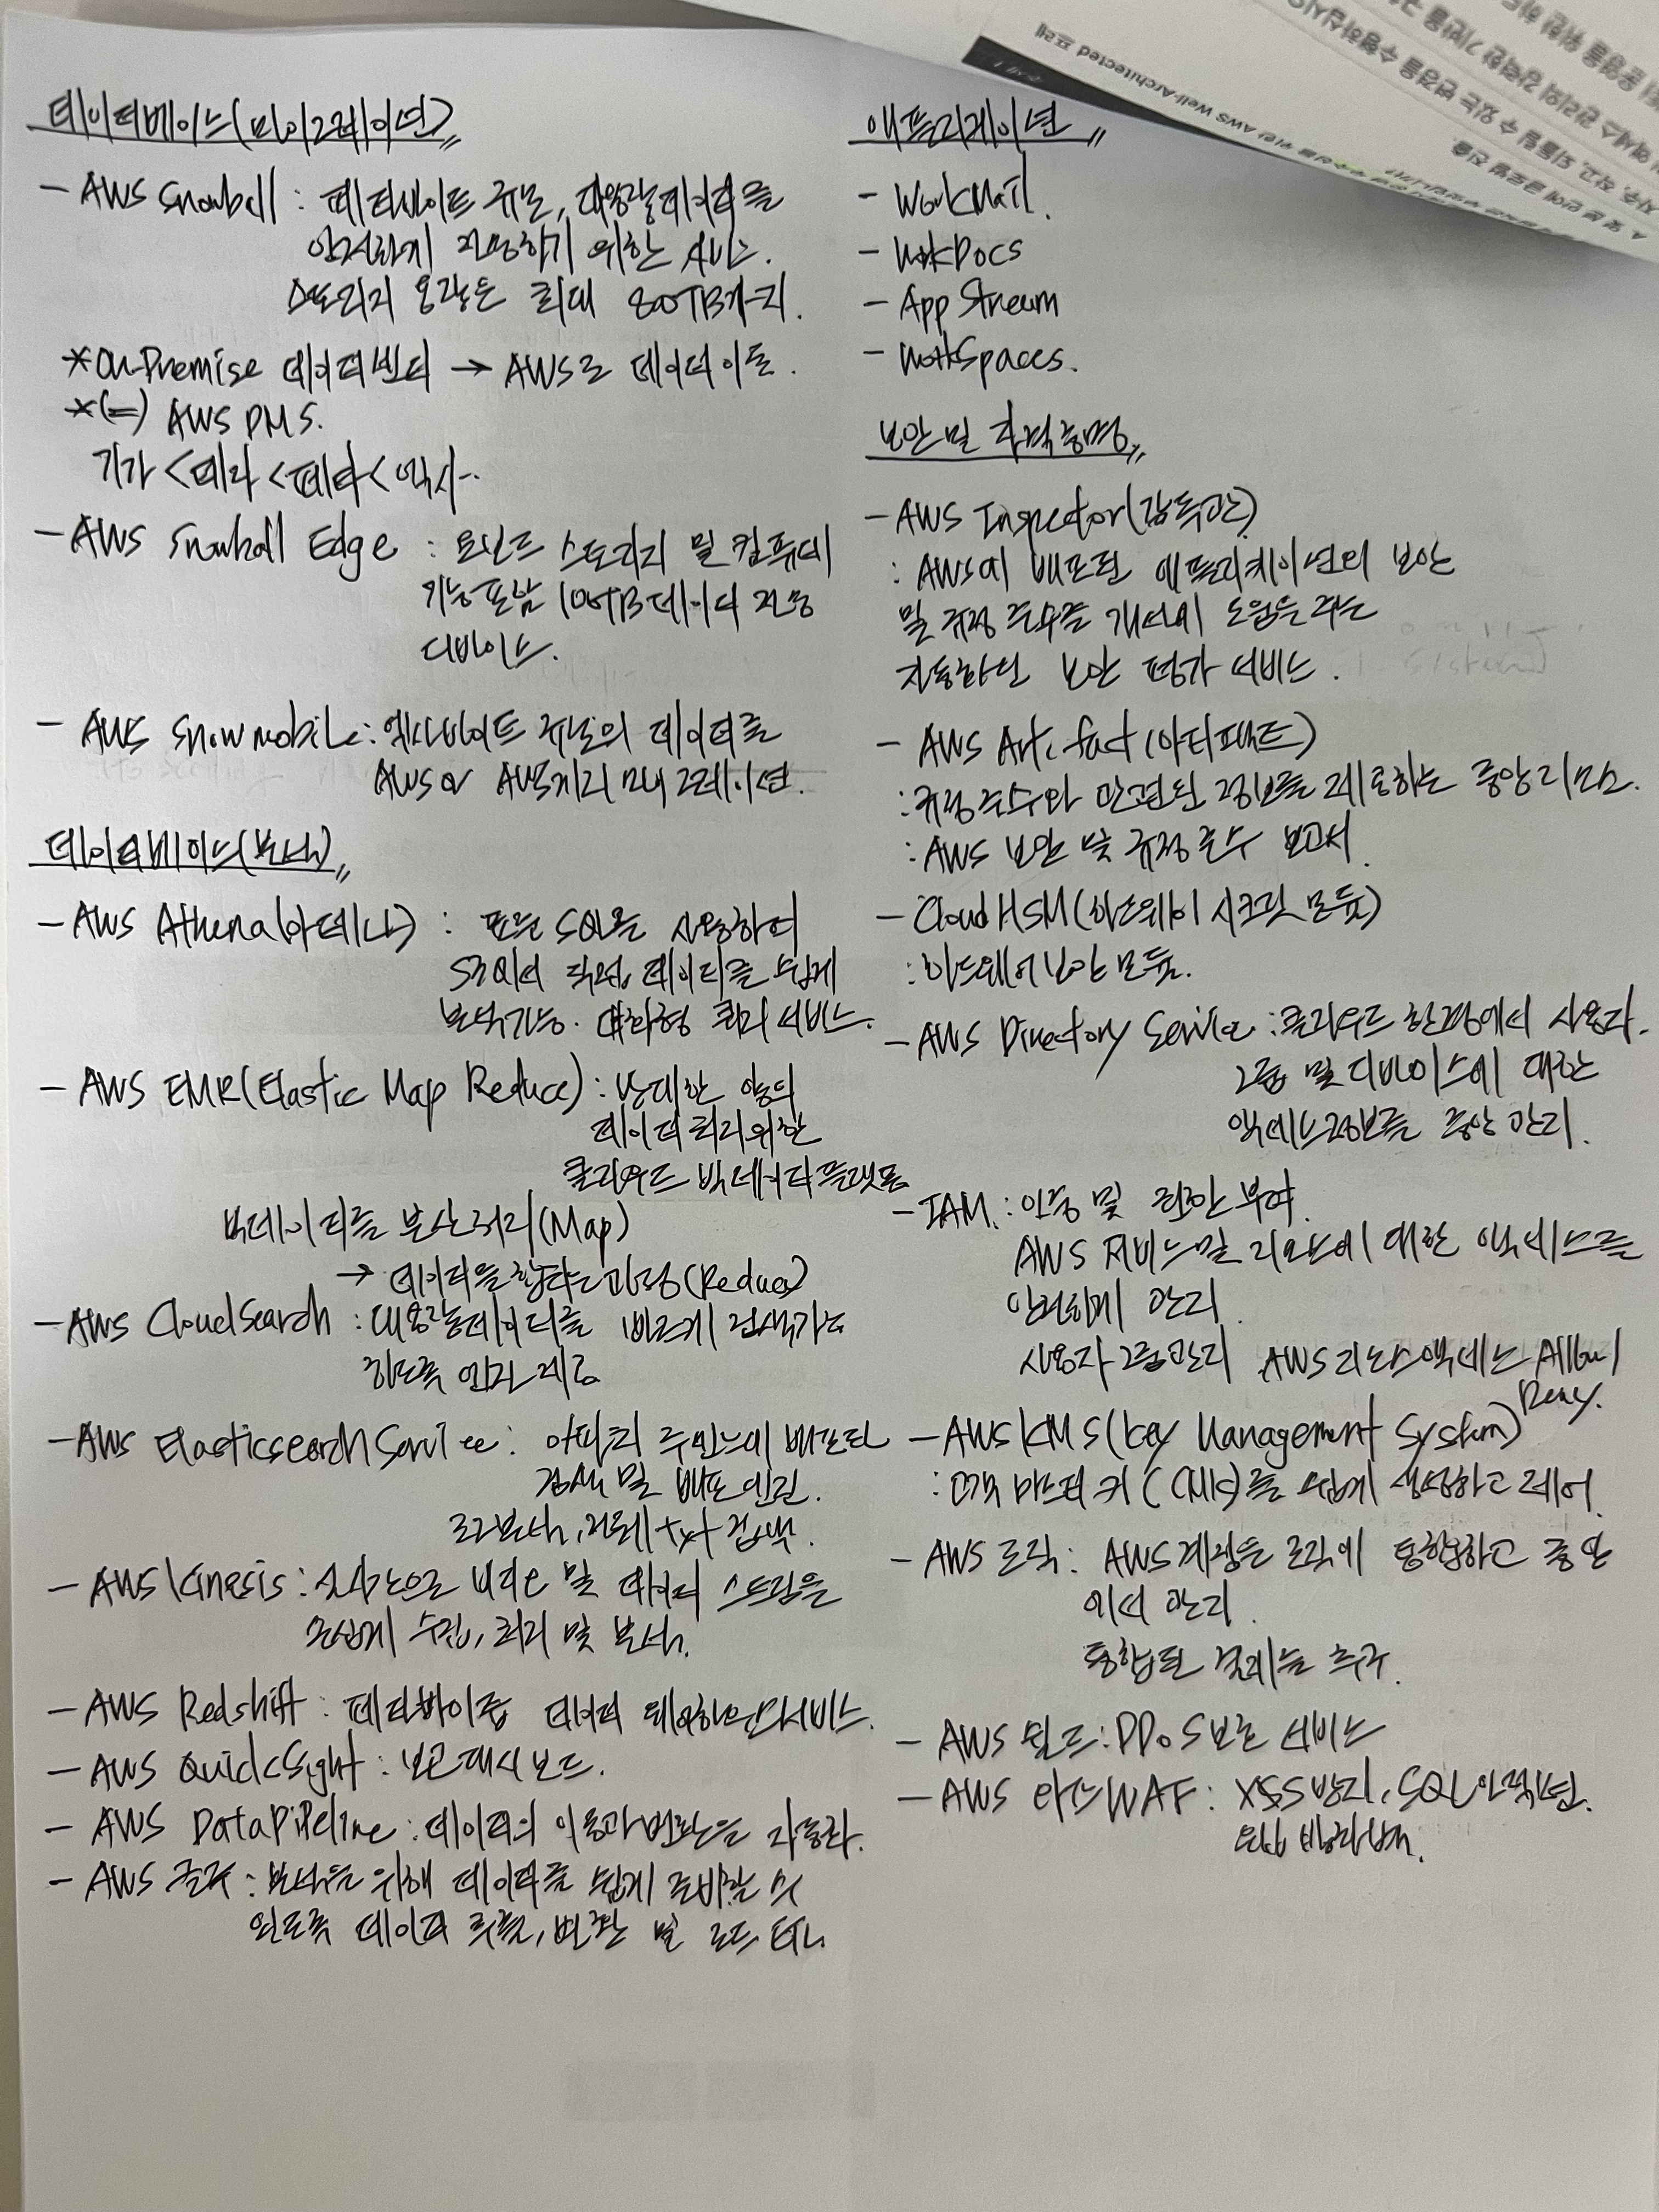 데이터베이스(마이그레이션)
- AWS Snowball : 페타바이트 규모, 대용량데이터를
안전하게 전송하기 위한 서비스.
스토리지 용량은 최대 80TB까지.
*On-Premise 데이터센터 → AWS로 데이터 이동.
*(=) AWS DMS.
기가 < 테라 < 페타 < 엑사..
- AWS Snowball Edge : 온보드 스토리지 및 컴퓨팅
기능포함 100TB데이터 전송
디바이스.
- AWS Snowmobile : 엑사바이트 규모의 데이터를
AWS로 마이그레이션.
데이터베이스(분석)
- AWS Athena(아테나) : 표준 SQL을 사용하여
S3에서 직접 데이터를 쉽게
분석가능. 대화형 쿼리 서비스.
- AWS EMR(Elastic Map Reduce) : 방대한 양의
데이터 처리위한
클라우드 빅데이터플랫폼
빅데이터를 분산처리(Map)
→ 데이터를 합치는과정(Reduce)
- AWS CloudSearch : 대용량데이터를 빠르게 검색가능
하도록 엔진 제공
- AWS Elasticsearch Service : 아파치 루씬느에 배포된
검색 및 배포 엔진.
로그분석, 전체 txt 검색.
- AWS Kinesis : 실시간으로 비디오 및 데이터 스트림을
손쉽게 수집, 처리 및 분석.
- AWS Redshift : 페타바이트 데이터 웨어하우스서비스.
- AWS QuickSight : 보고 대시보드.
- AWS DataPipeline : 데이터의 이동과 변환을 자동화.
- AWS 글루 : 분석을 위해 데이터를 쉽게 준비할 수
있도록 데이터 추출, 변환 및 로드 ETL
애플리케이션
- WorkMail.
- WorkDocs
- App Stream
- WorkSpaces.
보안 및 자격증명
- AWS Inspector(감독관)
: AWS에 배포된 애플리케이션의 보안
및 규정 준수를 개선에 도움을 주는
자동화된 보안 평가 서비스.
- AWS Artifact(아티팩트)
: 규정 준수와 관련된 정보를 제공하는 중앙 리소스.
: AWS 보안 및 규정 준수 보고서.
- Cloud HSM(하드웨어 시크릿 모듈)
: 하드웨어 보안 모듈.
- AWS Directory Service : 클라우드 환경에서 사용자.
그룹 및 디바이스에 대한
액세스정보를 중앙 관리.
- IAM. : 인증 및 권한 부여.
AWS 서비스 및 리소스에 대한 액세스를
안전하게 관리.
사용자 그룹관리 AWS 리소스 액세스 Allow/
Deny.
- AWS KMS(Key Management System)
: 고객 마스터 키(CMK)를 쉽게 생성하고 제어.
- AWS 조직 : AWS계정을 조직에 통합하고 중앙
에서 관리.
통합된 결제를 추구.
- AWS 쉴드 : DDoS 보호 서비스
- AWS 와프WAF : XSS방지, SQL인젝션.
웹 방화벽.
AWS Well-Architected 프레